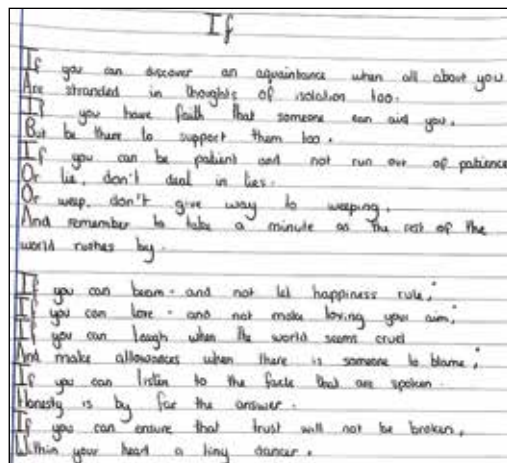 If
If you can discover an aquaintance when all about you
Are stranded in thoughts of isolation too.
If you have faith that someone can aid you,
But be there to support them too.
If you can be patient and not run out of patience
Or lie, don't deal in lies.
Or weep, don't give way to weeping,
And remember to take a minute as the rest of the
world rushes by.
If you can beam - and not let happiness rule;
If you can love - and not make loving your aim;
If you can laugh when the world seems cruel
And make allowances when there is someone to blame;
If you can listen to the facts that are spoken.
Honesty is by far the answer.
If you can ensure that trust will not be broken,
Within your heart a tiny dancer.